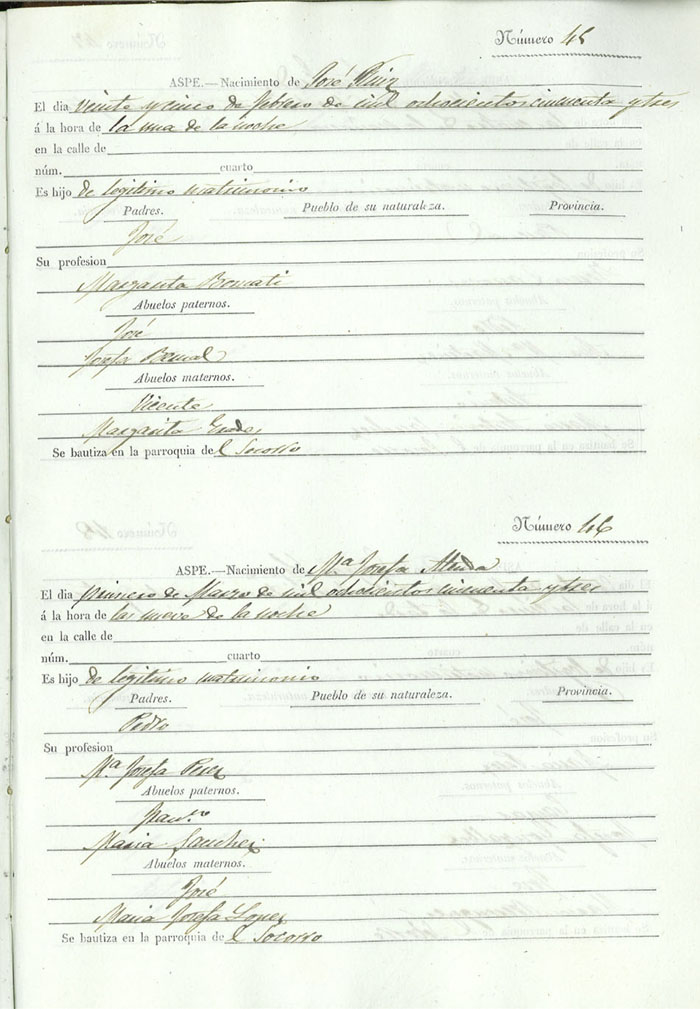 Número 45
ASPE.—Nacimiento de José Ruiz
El dia veinte y cinco de febrero de mil ochocientos cincuenta y tres
á la hora de la una de la noche
en la calle de
núm. cuarto
Es hijo de legitimo matrimonio
Padres. Pueblo de su naturaleza. Provincia.
José
Su profesion
Margarita
Abuelos paternos.
José
Josefa Bernal
Abuelos maternos.
Vicente
Margarita
Se bautiza en la parroquia de l Socorro
Número 46
ASPE.—Nacimiento de Mª Josefa
El dia primero de Marzo de mil ochocientos cincuenta y tres
á la hora de las nueve de la noche
en la calle de
núm. cuarto
Es hijo de legitimo matrimonio
Padres. Pueblo de su naturaleza. Provincia.
Pedro
Su profesion
Mª Josefa Perez
Abuelos paternos.
Maria Sanchez
Abuelos maternos.
José
Maria Josefa Lopez
Se bautiza en la parroquia de l Socorro